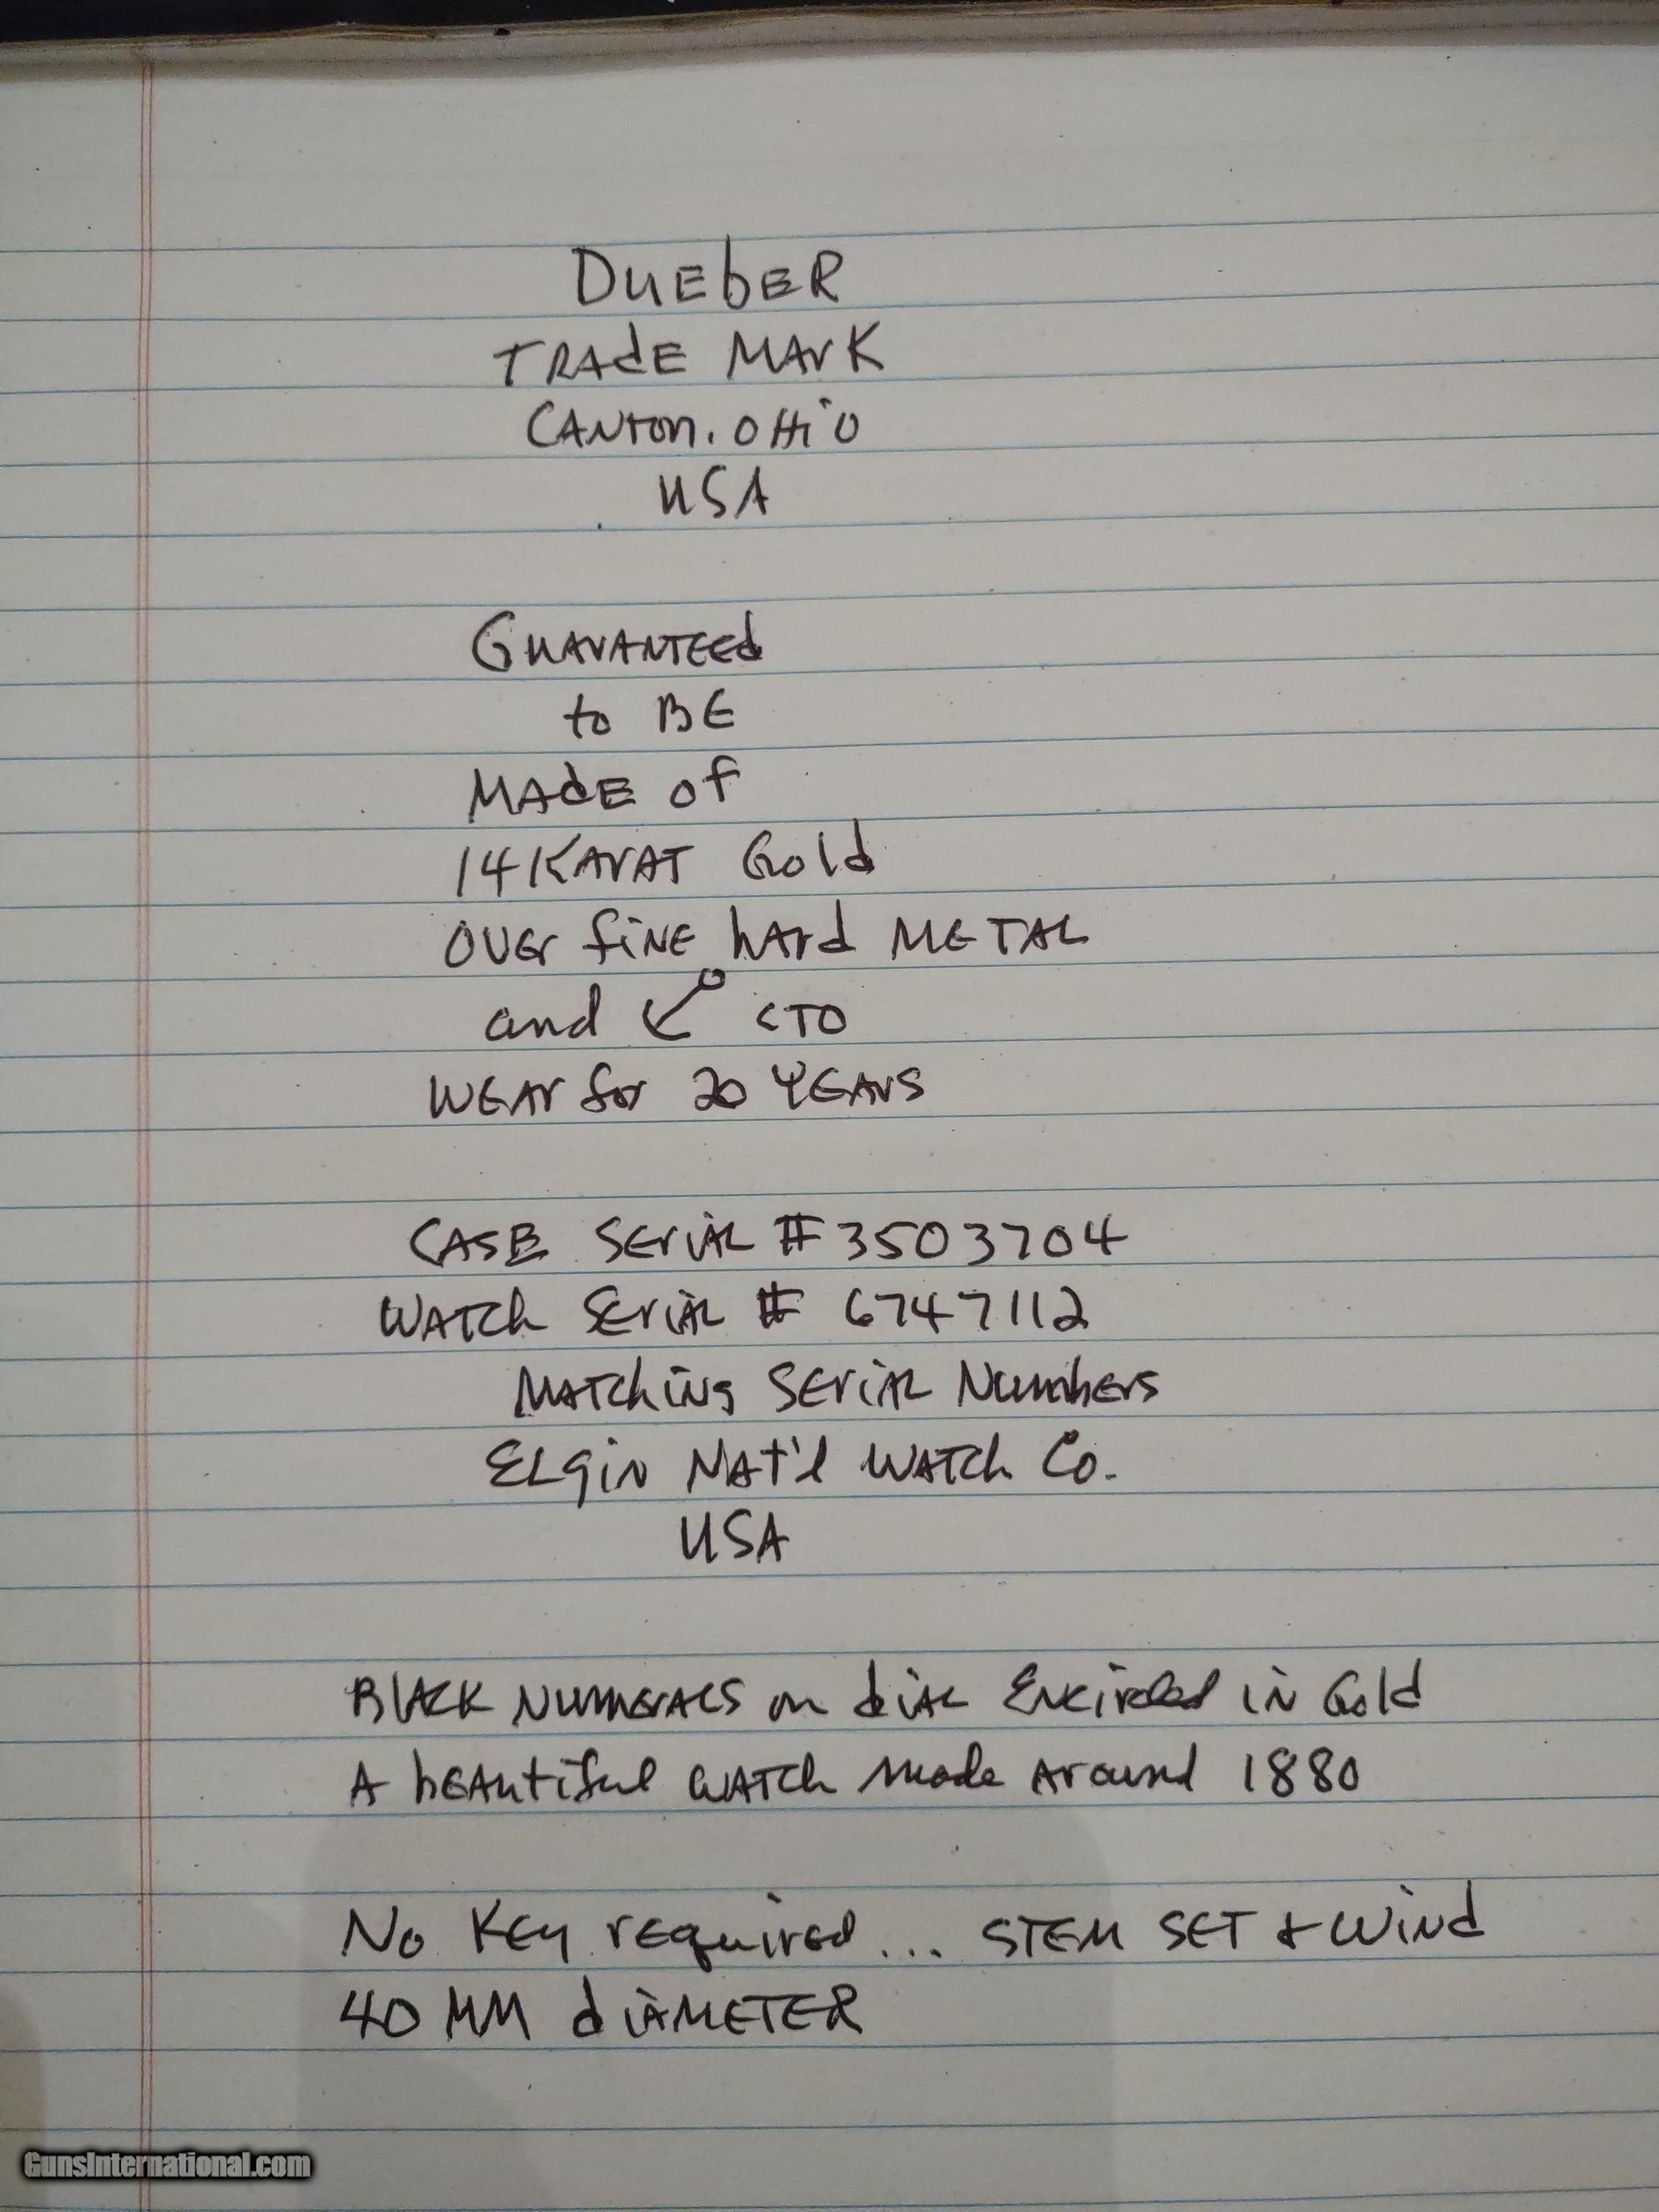 DuEbER
TRAdE MArK
CANton. OHiO
USA
GuArANTEEd
to BE
MAdE of
14 KArAT Gold
OVEr fiNE hArd METAL
and CTO
WEAr for 20 YEArS
CASE SEriAL # 3503704
WATCh SEriAL # 6747112
MATChiNg SEriAL NumbErs
ELgiN NAt'l WATCh Co.
USA
BlACK NumErALS on diAL ENcircled iN Gold
A bEAutiful WATCh made Around 1880
No KEy rEquirEd ... STEM SET & WiNd
40 MM diAMETER
GunsInternational.com